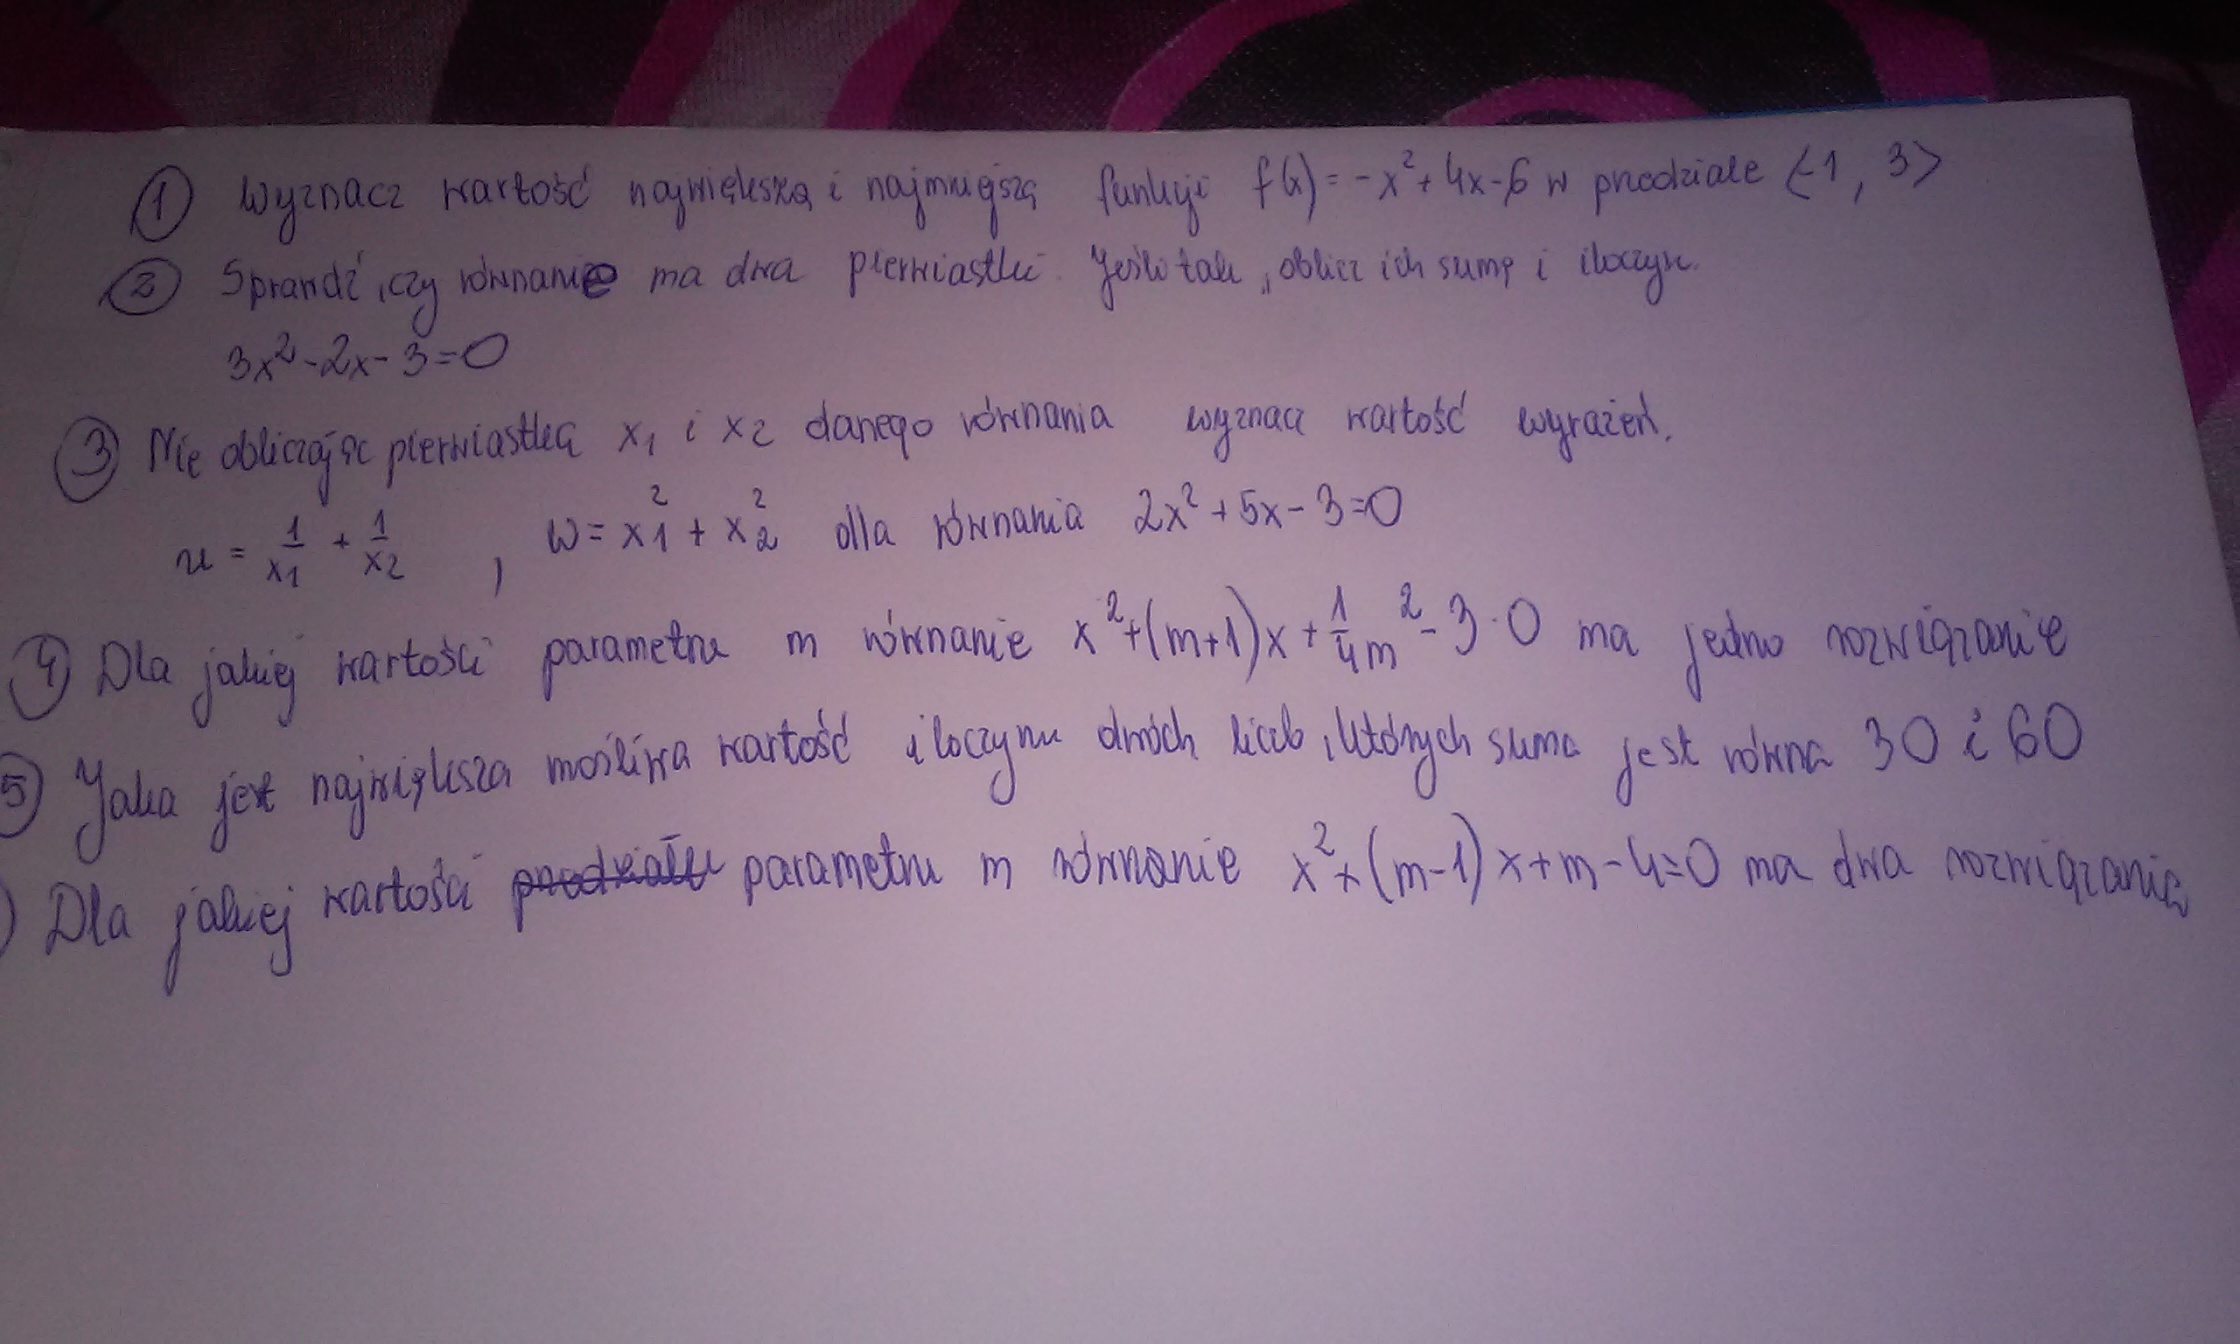 ① Wyznacz wartość największą i najmniejszą funkcji f(x)=-x²+4x-6 w przedziale <-1, 3>
② Sprawdź, czy równanie ma dwa pierwiastki. Jeśli tak, oblicz ich sumę i iloczyn.
3x²-2x-3=0
③ Nie obliczając pierwiastką x₁ i x₂ danego równania wyznacz wartość wyrażeń.
u = 1/x₁ + 1/x₂ , w = x₁² + x₂² dla równania 2x²+5x-3=0
④ Dla jakiej wartości parametru m równanie x²+(m+1)x+1/4m²-3·0 ma jedno rozwiązanie
⑤ Jaka jest największa możliwa wartość iloczynu dwóch liczb, których suma jest równa 30 i 60
) Dla jakiej wartości przedziału parametru m równanie x²+(m-1)x+m-4=0 ma dwa rozwiązania